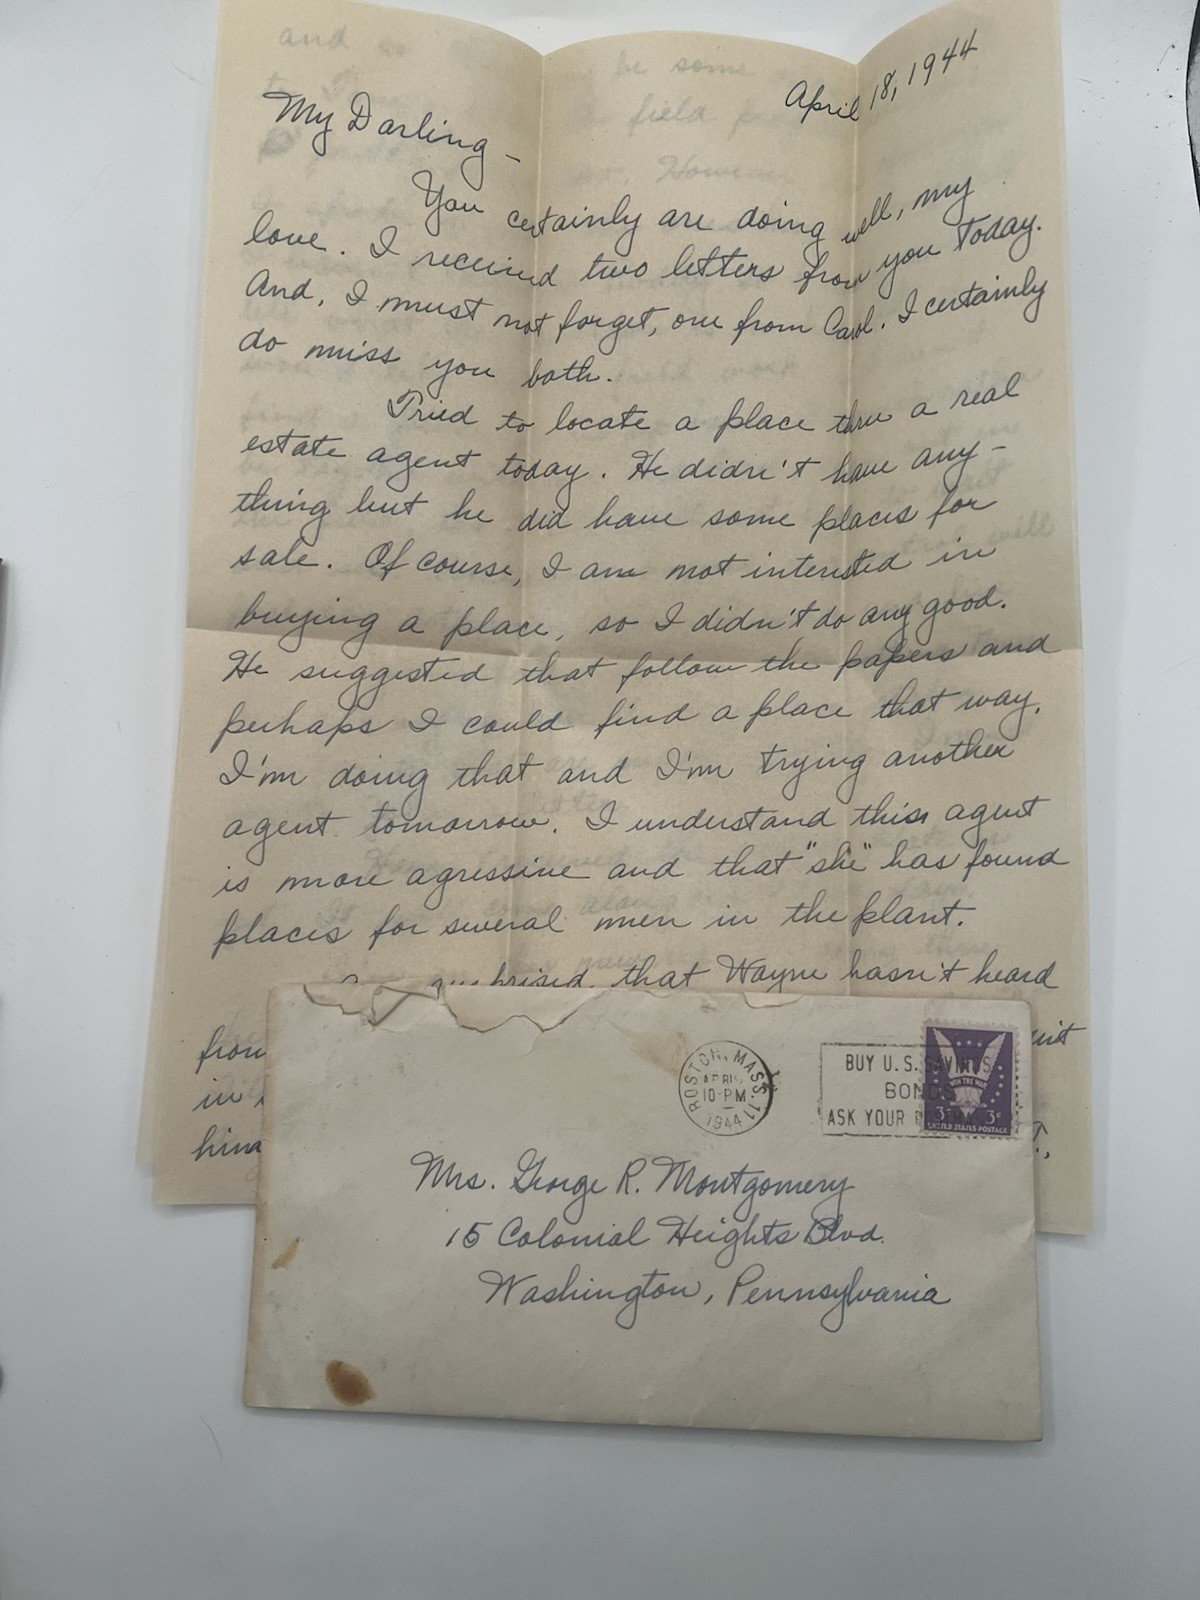 April 18, 1944
My Darling –
You certainly are doing well, my
love. I received two letters from you today.
And, I must not forget, one from Carol. I certainly
do miss you both.
Tried to locate a place thru a real
estate agent today. He didn't have any-
thing but he did have some places for
sale. Of course, I am not interested in
buying a place, so I didn't do any good.
He suggested that follow the papers and
perhaps I could find a place that way.
I'm doing that and I'm trying another
agent tomorrow. I understand this agent
is more agressive and that "she" has found
places for several men in the plant.
that Wayne hasn't heard
from
in
him
BOSTON, MASS. 11
APR
10-PM
1944
BUY U.S. SAVINGS
BONDS
ASK YOUR
WIN THE WAR
3¢ 3¢
UNITED STATES POSTAGE
Mrs. George R. Montgomery
15 Colonial Heights Blvd.
Washington, Pennsylvania